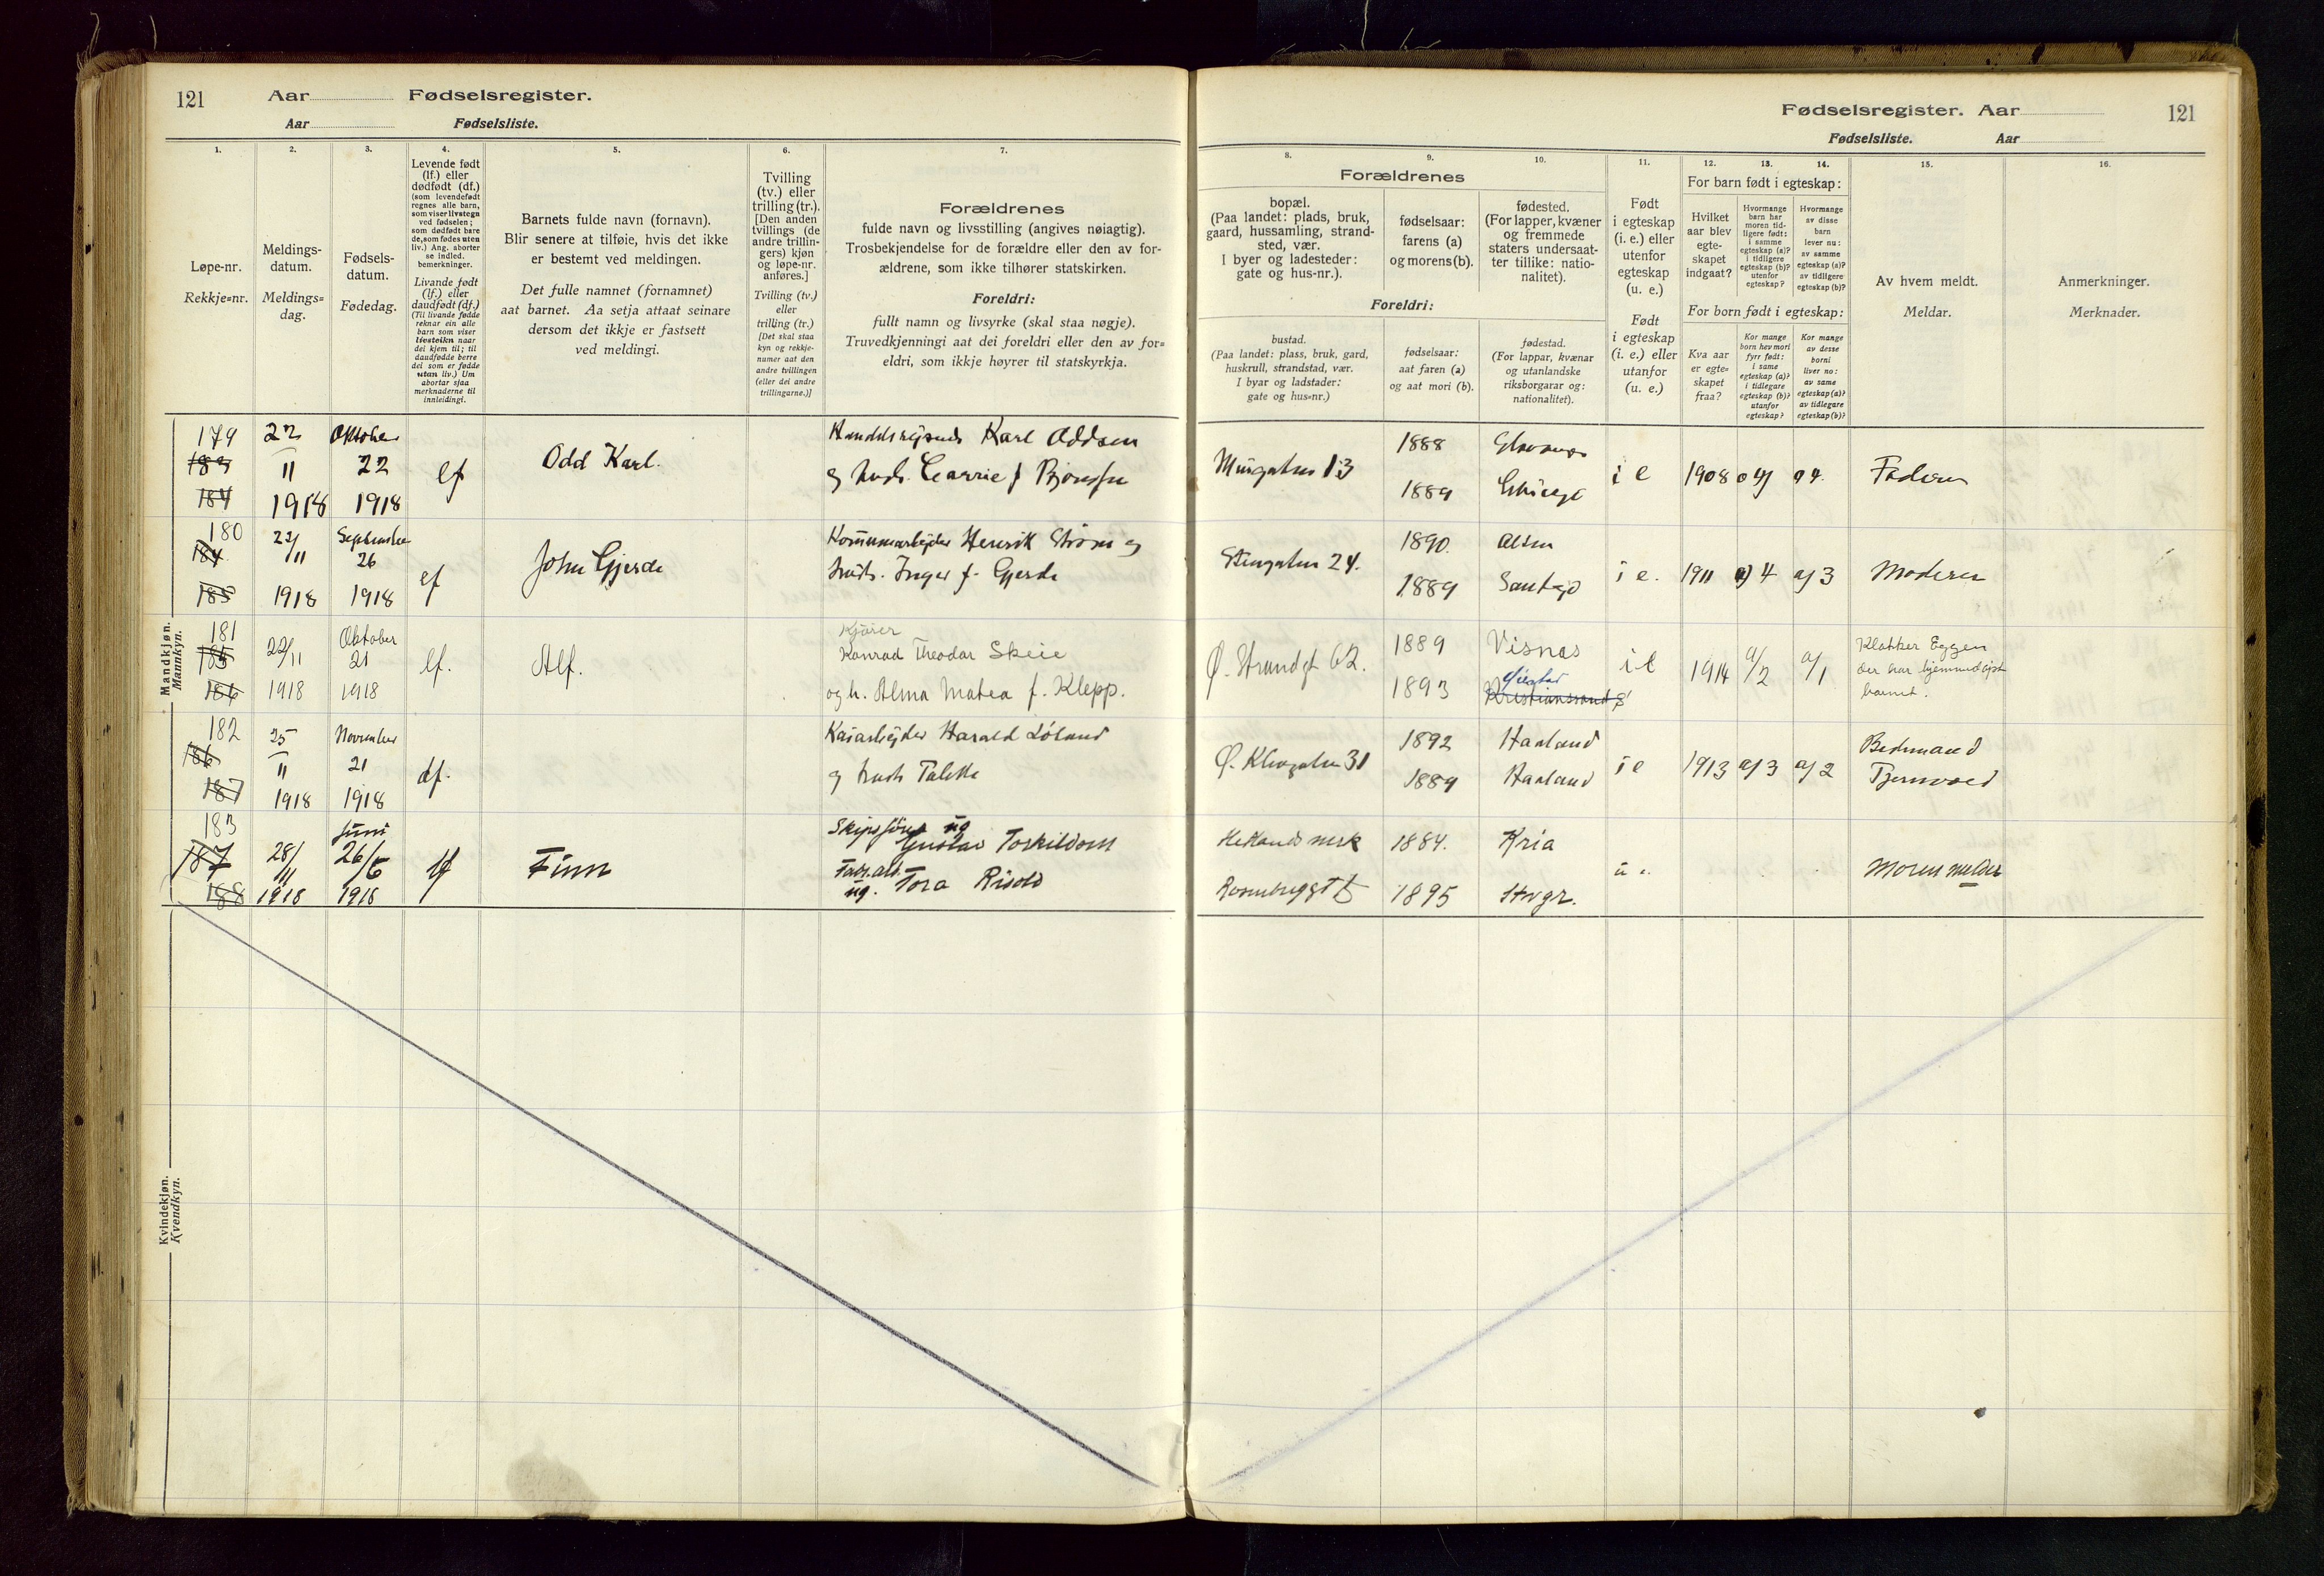 121 Aar Fødselsregister.
Aar Fødselsliste.
Fødselsregister. Aar 121
Fødselsliste. Aar
1.
Løpe-nr.
Rekkje=nr.
2.
Meldings-
datum.
Meldings=
dag.
3.
Fødsels-
datum.
Fødedag.
4.
Levende født
(lf.) eller
dødfødt (df.)
(som levendefødt
regnes alle barn,
som viser livstegn
ved fødselen;
som dødfødt bare
de, som fødes uten
liv.) Ang. aborter
se indled.
bemerkninger.
Livande født
(lf.) eller
daudfødt (df.)
(Til livande fødde
reknar ein alle
barn som viser
livsteikn naar
dei kjem til; til
daudfødde berre
dei som er fødde
utan liv.) Um
abortar sjaa
merknaderne til
innleidingi.
5.
Barnets fulde navn (fornavn).
Blir senere at tilføie, hvis det ikke
er bestemt ved meldingen.
Det fulle namnet (fornamnet)
aat barnet. Aa setja attaat seinare
dersom det ikkje er fastsett
ved meldingi.
6.
Tvilling
(tv.) eller
trilling (tr.).
[Den anden
tvillings (de
andre trillin-
gers) kjøn
og løpe-nr.
anføres.]
Tvilling (tv.)
eller
trilling (tr.)
[Det skal staa
kyn og rekkje-
numer aat den
andre tvillingen
(eller dei andre
trillingarne.)]
7.
Forældrenes
fulde navn og livsstilling (angives nøiagtig).
Trosbekjendelse for de forældre eller den av for-
ældrene, som ikke tilhører statskirken.
Foreldri:
fullt namn og livsyrke (skal staa nøgje).
Truvedkjenningi aat dei foreldri eller den av for=
eldri, som ikkje høyrer til statskyrkja.
Forældrenes
8.
bopæl.
(Paa landet: plads, bruk,
gaard, hussamling, strand-
sted, vær.
I byer og ladesteder:
gate og hus-nr.).
9.
fødselsaar:
farens (a)
og morens (b).
10.
fødested.
(For lapper, kvæner
og fremmede
staters undersaat-
ter tillike: natio-
nalitet).
Foreldri:
bustad.
(Paa landet: plass, bruk, gard,
huskrull, strandstad, vær.
I byar og ladstader:
gate og hus=nr.)
fødselsaar:
aat faren (a)
og aat mori (b).
fødestad.
(For lappar, kvænar
og utanlandske
riksborgarar og:
nationalitet).
11.
Født
i egteskap
(i. e.) eller
utenfor
egteskap
(u. e.)
Født
i egteskap
(i. e.) eller
utanfor
(u. e.)
12. 13. 14.
For barn født i egteskap:
Hvilket
aar blev
egte-
skapet
indgaat?
Hvormange
barn har
moren tid-
ligere født:
i samme
egteskap (a)?
i tidligere
egteskap (b)?
utenfor
egteskap?
Hvormange
av disse
barn
lever nu:
av samme
egteskap (a)?
av tidligere
egteskap (b)?
For born født i egteskap:
Kva aar
er egte=
skapet
fraa?
Kor mange
born hev mori
fyrr født:
i same
egteskap (a)?
i tidlegare
egteskap (b)?
utanfor
egteskap?
Kor mange
av desse
borni
liver no:
av same
egteskap (a)?
av tidlegare
egteskap (b)?
15.
Av hvem meldt.
Meldar.
16.
Anmerkninger.
Merknader.
Mandkjøn.
Mannkyn.
179 183 184
22/11 1918
Oktober 22 1918
lf
Odd Karl.
Karl Oddsen
og hust. Carrie f
13
1888
1889
i e 1908 4 4.
Faderen
180 184 185
22/11 1918
September 26 1918
lf
John Gjerde
Kommunearbejder Henrik Strøm og
hust. Inger f. Gjerde
Stengaten 24.
1890.
1889
i e. 1911 a/4 a/3
Moderen
181 185 186
22/11 1918
Oktober 21 1918
lf.
Alf.
Kjører
Konrad Theodor Skeie
og h. Alma Matea f. Klepp.
Ø. Strandgt 62.
1889 Visnes
1893 Kristianssand S
i e 1914 a/2 a/1
Klokker Eggen
der har hjemmedøpt
barnet.
182 186 187
25/11 1918
November 21 1918
df.
Kaiarbejder Harald Löland
og hust. Talette
31
1892 Haaland
1889 Haaland
i e 1913 a/3 a/2
Bedemand
Tjernvoed
183 187 188
28/11 1918
Juni 26/6 1918
lf
Finn
Skipsfører ug
Gustav Torkildsen
ug. Tora
Hetlands
1884. Kria
1895 Stvgr.
u e.
Moren melder
Kvindekjøn.
Kvendkyn.